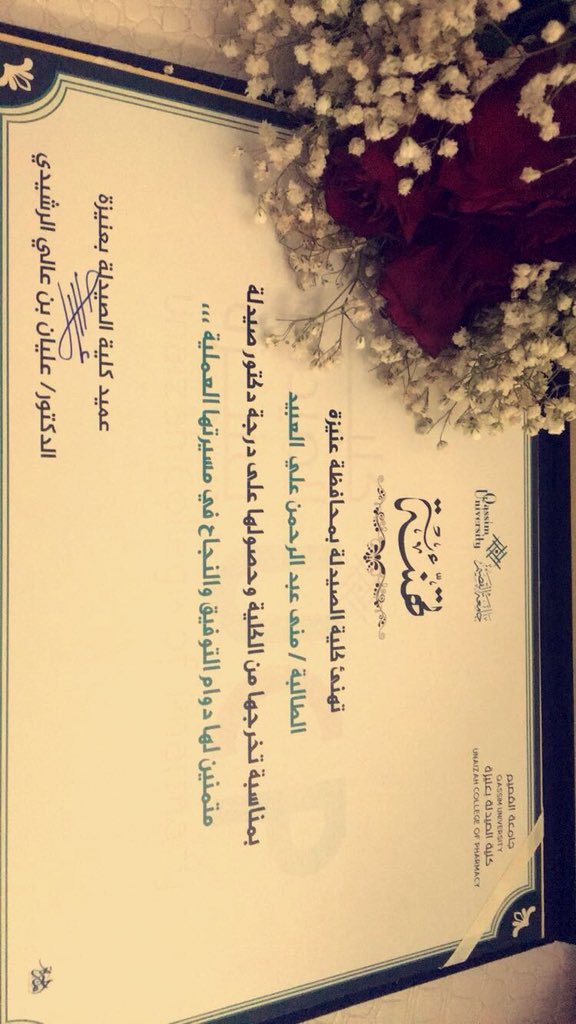 جامعة القصيم
QASSIM UNIVERSITY
كلية الصيدلة بعنيزة
UNAIZAH COLLEGE OF PHARMACY
Qassim
University
جامعة القصيم
تهنئة
تهنئ كلية الصيدلة بمحافظة عنيزة
الطالبة / منى عبد الرحمن علي العبيد
بمناسبة تخرجها من الكلية وحصولها على درجة دكتور صيدلة
متمنين لها دوام التوفيق والنجاح في مسيرتها العملية ،،،
عميد كلية الصيدلة بعنيزة
الدكتور/ عليان بن عالي الرشيدي